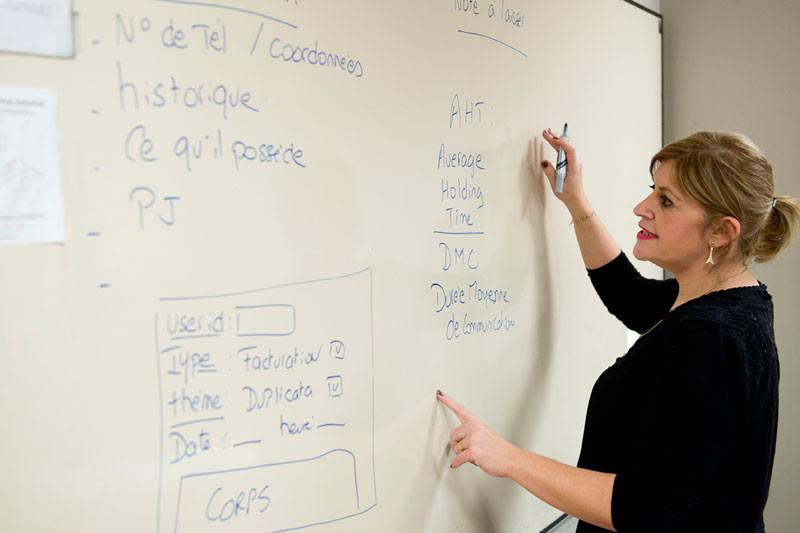 N° de Tél / coordonnées
historique
Ce qu'il possède
PJ
User id :
Type : Facturation
thème : Duplicata
Date : __ heure __
CORPS
Note à laisser
AHT :
Average
Holding
Time
DMC
Durée Moyenne
de Communication